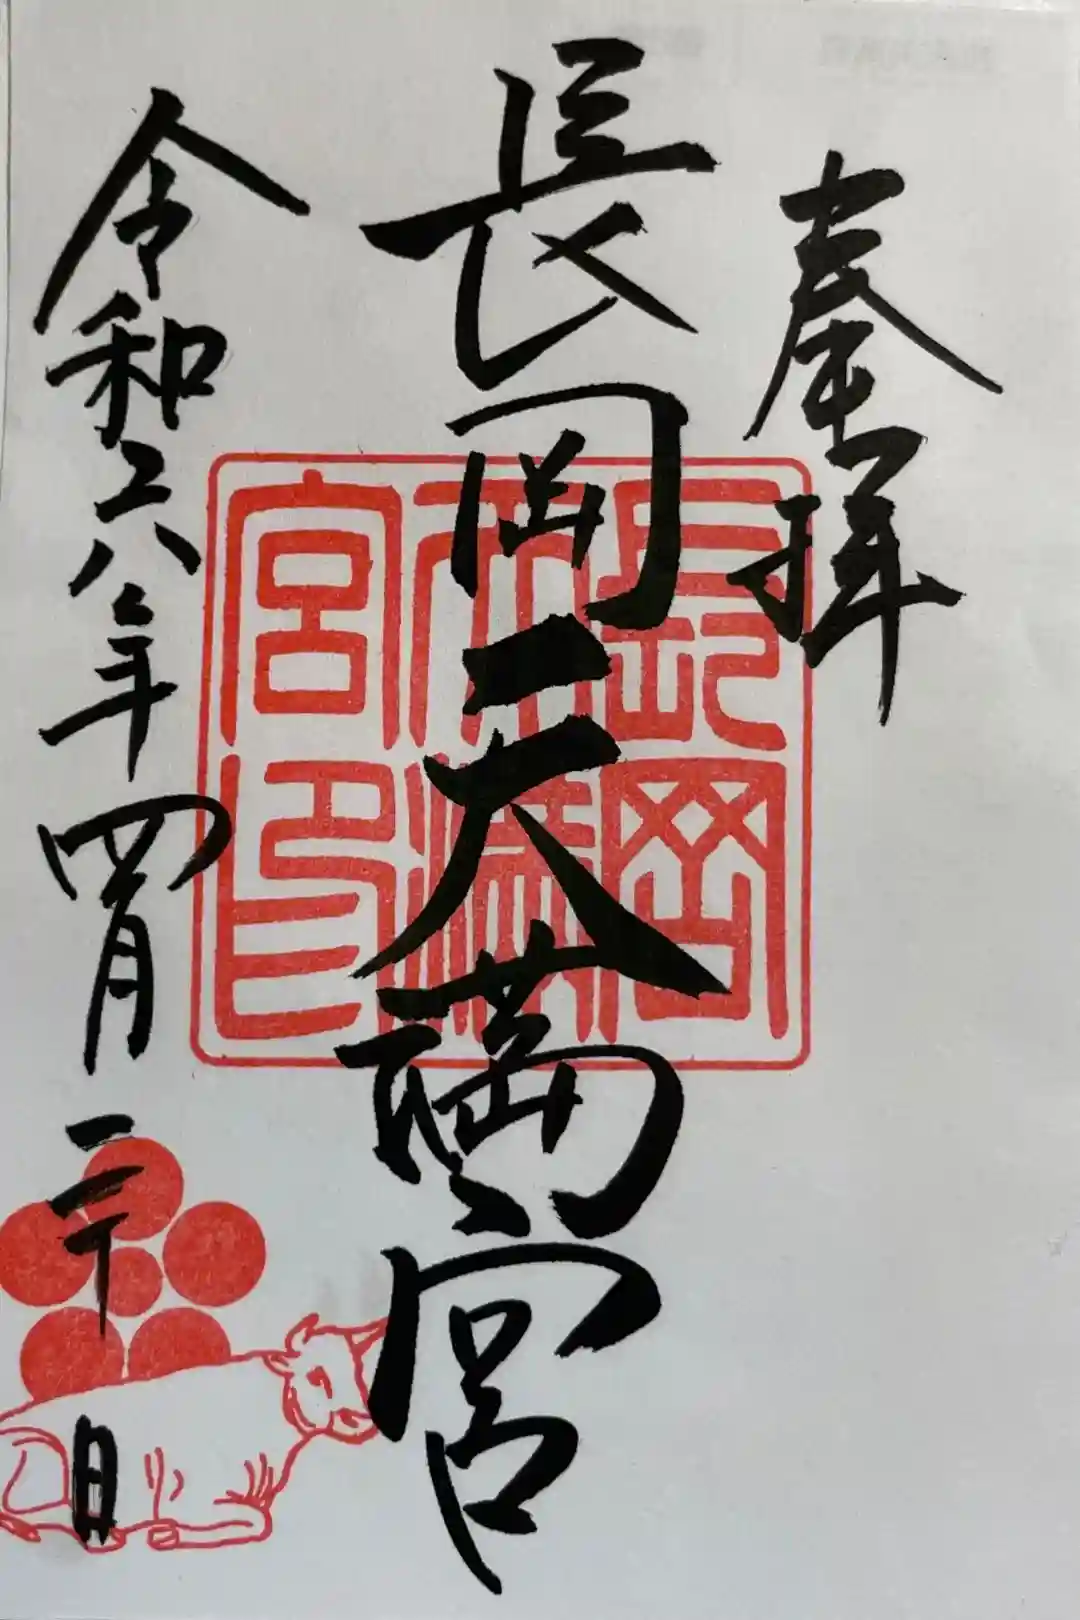 奉拝
長岡天満宮
令和六年四月二十日
長岡
天満
宮印